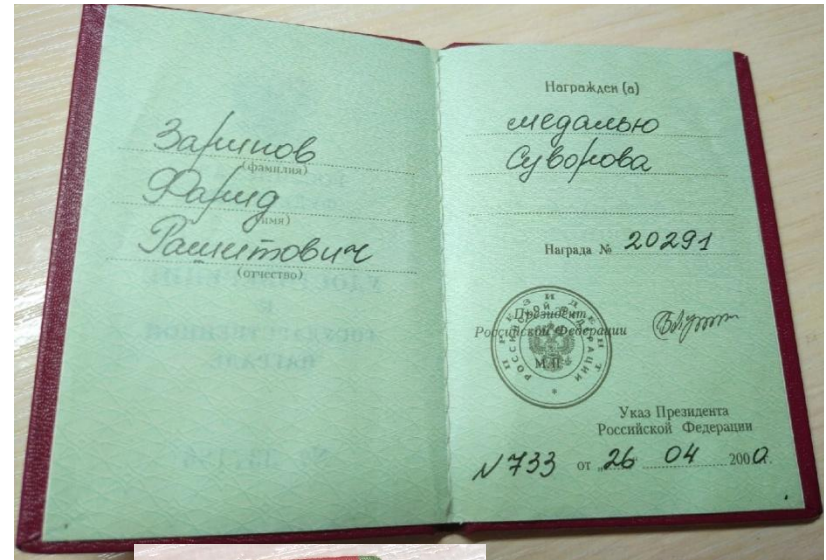 Зарипов
(фамилия)
Фарид
(имя)
Рашитович
(отчество)
Награжден (а)
медалью
Суворова
Награда № 20291
Президент
Российской Федерации
М.П.
ПРЕЗИДЕНТ
РОССИЙСКОЙ ФЕДЕРАЦИИ
Указ Президента
Российской Федерации
N 733 от „26“ 04 2000г.